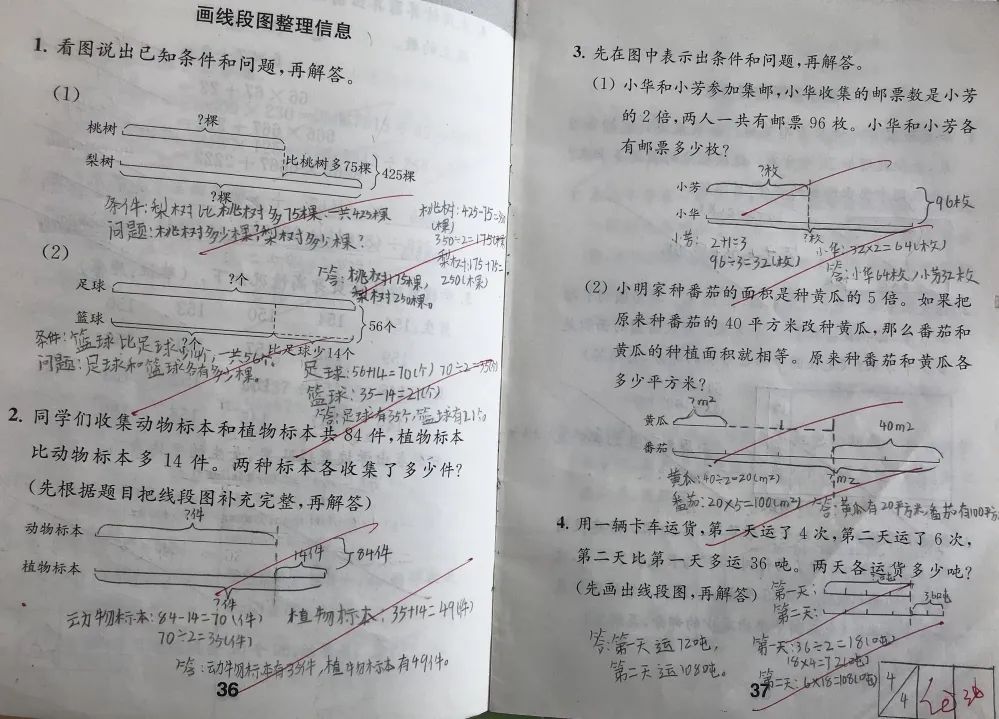 画线段图整理信息
1. 看图说出已知条件和问题,再解答。
(1)
?棵
桃树
梨树
比桃树多75棵
425棵
?棵
条件:梨树比桃树多75棵,一共425棵
问题:桃树多少棵?梨树多少棵?
桃树:425-75=350
(棵)
350÷2=175(棵)
梨树:175+75=
250(棵)
答:桃树175棵,
梨树250棵。
(2)
?个
足球
篮球
56个
?个
比足球少14个
条件:篮球比足球少14个,一共56个
问题:足球和篮球各有多少棵。
足球:56+14=70(个) 70÷2=35(个)
篮球:35-14=21(个)
答:足球有35个,篮球有21个。
2. 同学们收集动物标本和植物标本共84件,植物标本
比动物标本多14件。两种标本各收集了多少件?
(先根据题目把线段图补充完整,再解答)
?件
动物标本
14件
84件
植物标本
?件
动物标本:84-14=70(件)
70÷2=35(件)
植物标本:35+14=49(件)
答:动物标本有35件,植物标本有49件。
36
3. 先在图中表示出条件和问题,再解答。
(1) 小华和小芳参加集邮,小华收集的邮票数是小芳
的2倍,两人一共有邮票96枚。小华和小芳各
有邮票多少枚?
?枚
小芳
小华
96枚
?枚
小芳: 2+1=3
96÷3=32(枚)
小华:32×2=64(枚)
答:小华64枚,小芳32枚
(2) 小明家种番茄的面积是种黄瓜的5倍。如果把
原来种番茄的40平方米改种黄瓜,那么番茄和
黄瓜的种植面积就相等。原来种番茄和黄瓜各
多少平方米?
?m2
黄瓜
40m2
番茄
?m2
黄瓜:40÷2=20(m2)
番茄:20×5=100(m2)
答:黄瓜有20平方米,番茄有100平方
4. 用一辆卡车运货,第一天运了4次,第二天运了6次,
第二天比第一天多运36吨。两天各运货多少吨?
(先画出线段图,再解答)
第一天:
第二天:
36吨
答:第一天运72吨,
第二天运108吨。
第一天:36÷2=18(吨)
18×4=72(吨)
第二天:6×18=108(吨)
37
4
4